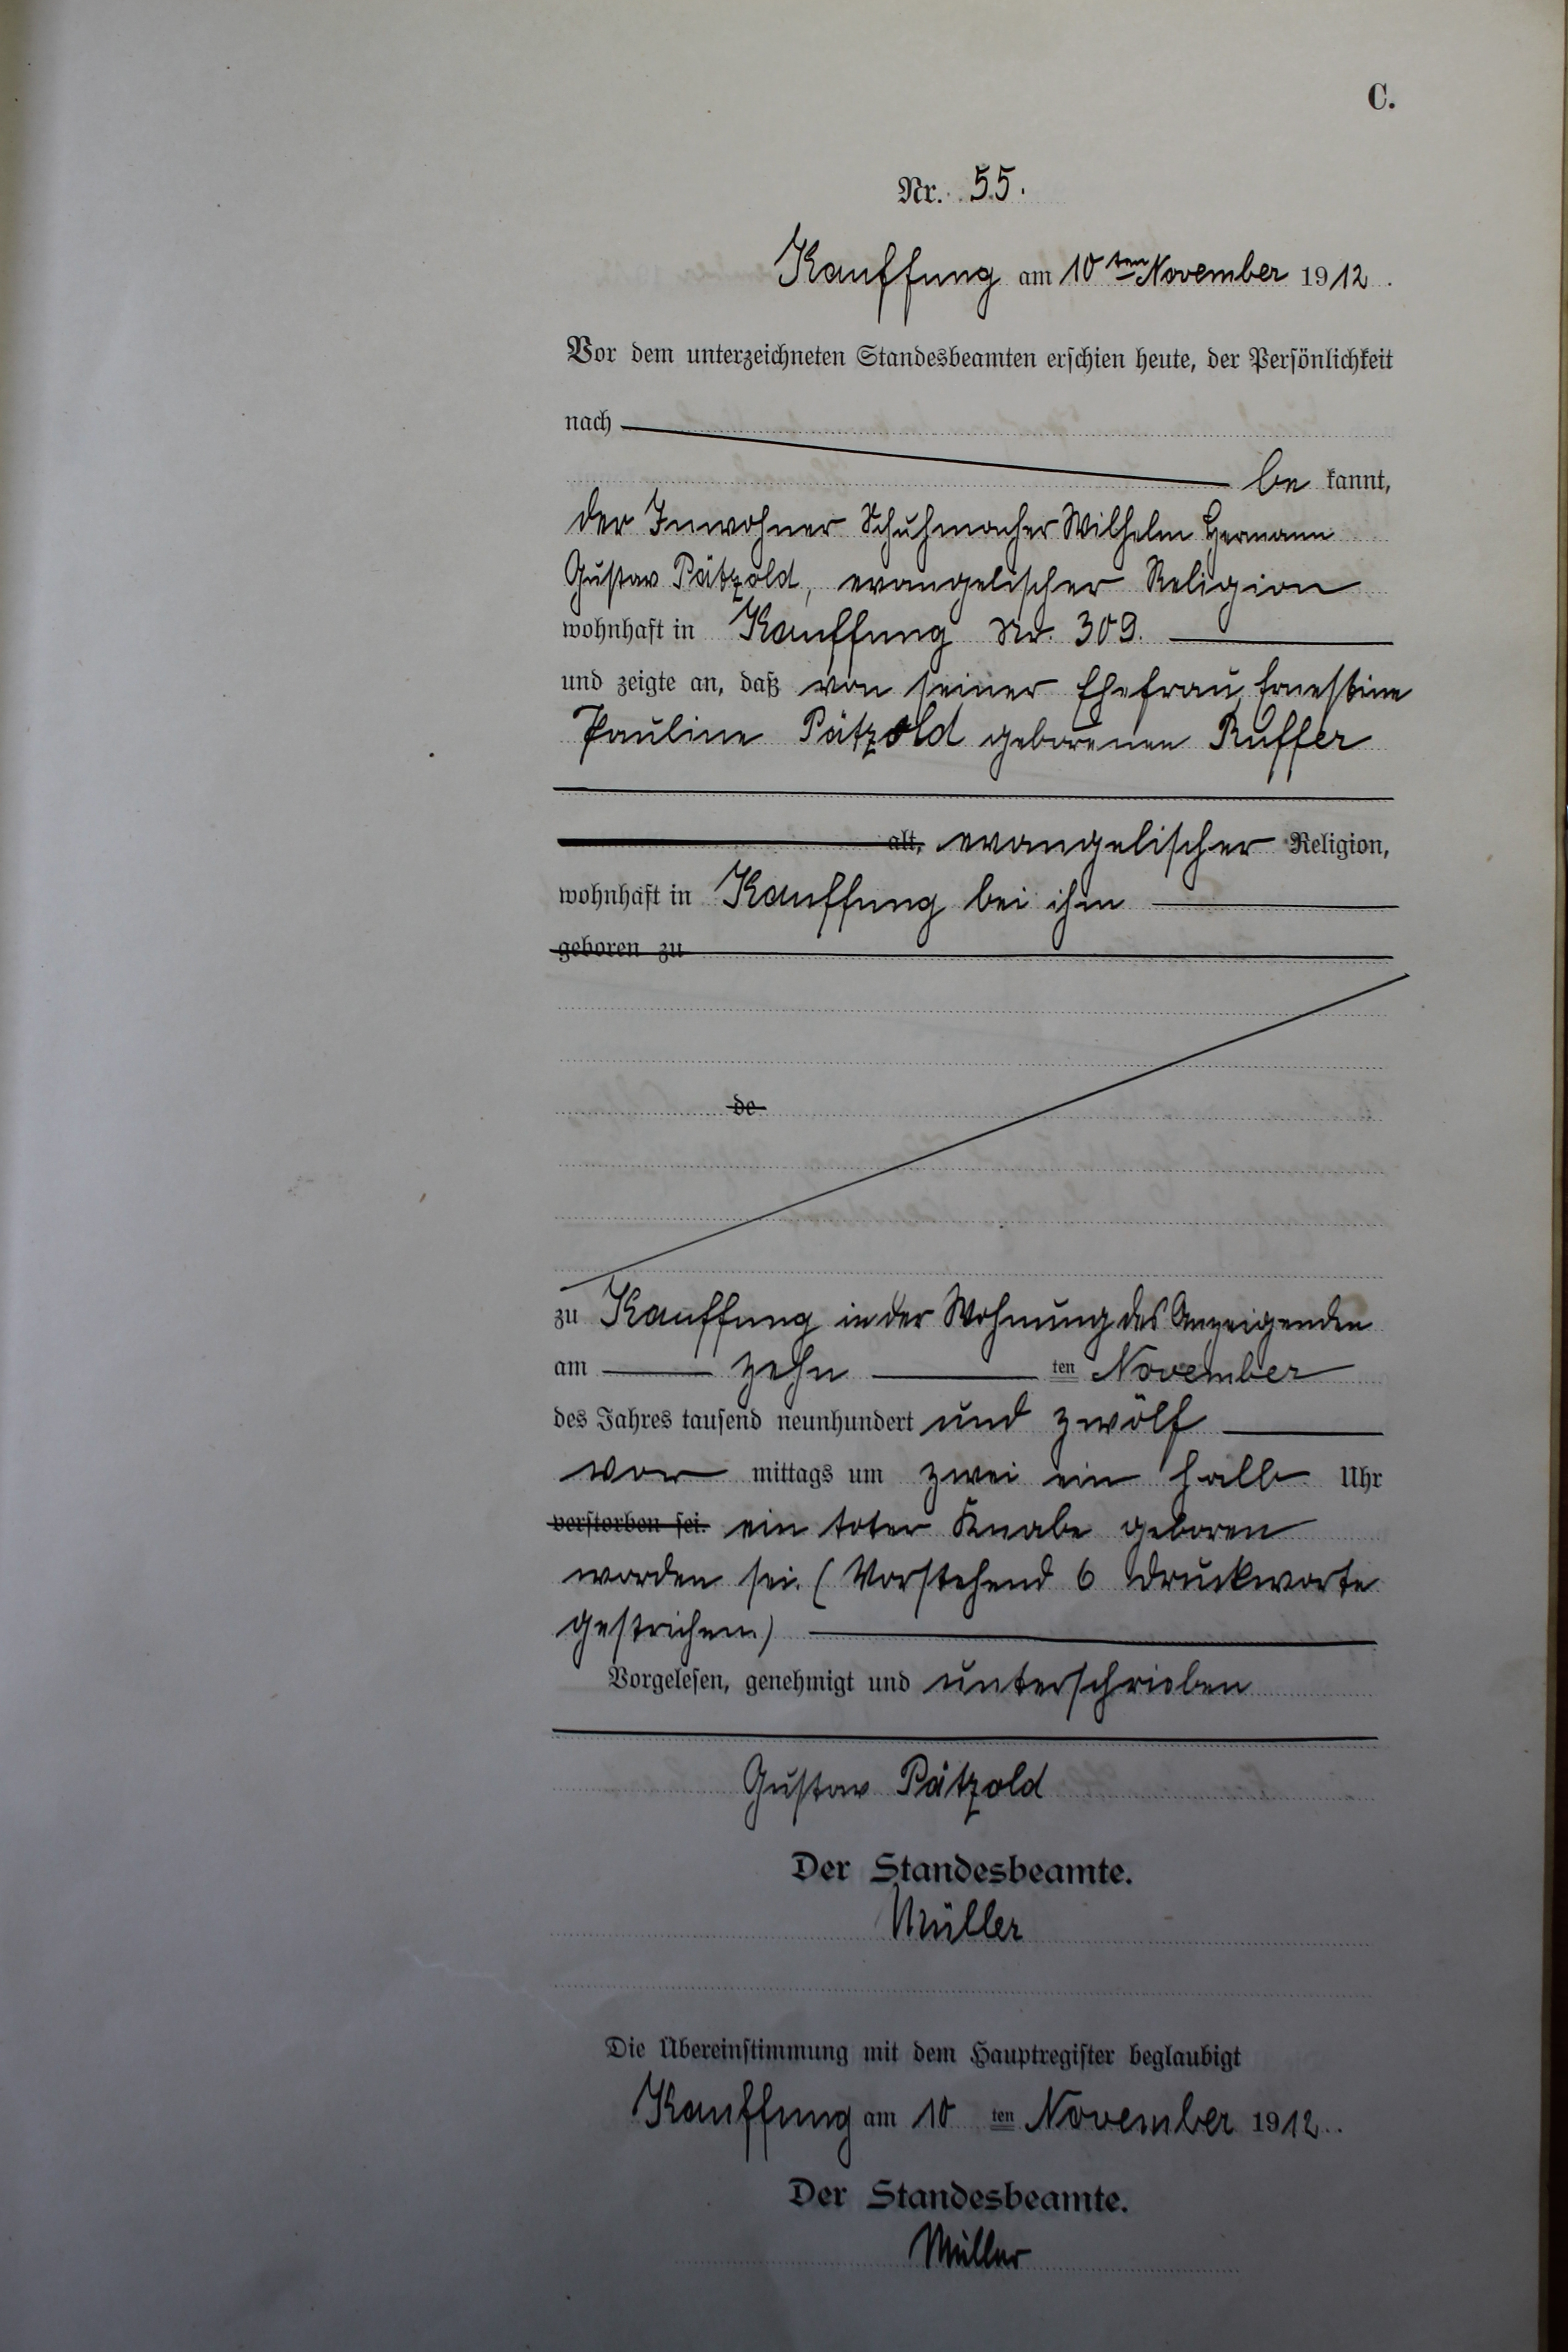 C.
Nr. 55.
Kauffung am 10ten November 1912.
Vor dem unterzeichneten Standesbeamten erschien heute, der Persönlichkeit
nach
be kannt,
der Inwohner Schuhmacher Wilhelm Hermann
Gustav Pätzold, evangelischer Religion
wohnhaft in Kauffung Nr. 309.
und zeigte an, daß von seiner Ehefrau Ernestine
Pauline Pätzold geborenen Ruffer
alt, evangelischer Religion,
wohnhaft in Kauffung bei ihm
geboren zu
de
zu Kauffung in der Wohnung des Anzeigenden
am zehn ten November
des Jahres tausend neunhundert und zwölf
vor mittags um zwei ein halb Uhr
verstorben sei. ein toter Knabe geboren
worden sei. (Vorstehend 6 Druckworte
gestrichen)
Vorgelesen, genehmigt und unterschrieben
Gustav Pätzold
Der Standesbeamte.
Müller
Die Übereinstimmung mit dem Hauptregister beglaubigt
Kauffung am 10 ten November 1912.
Der Standesbeamte.
Müller